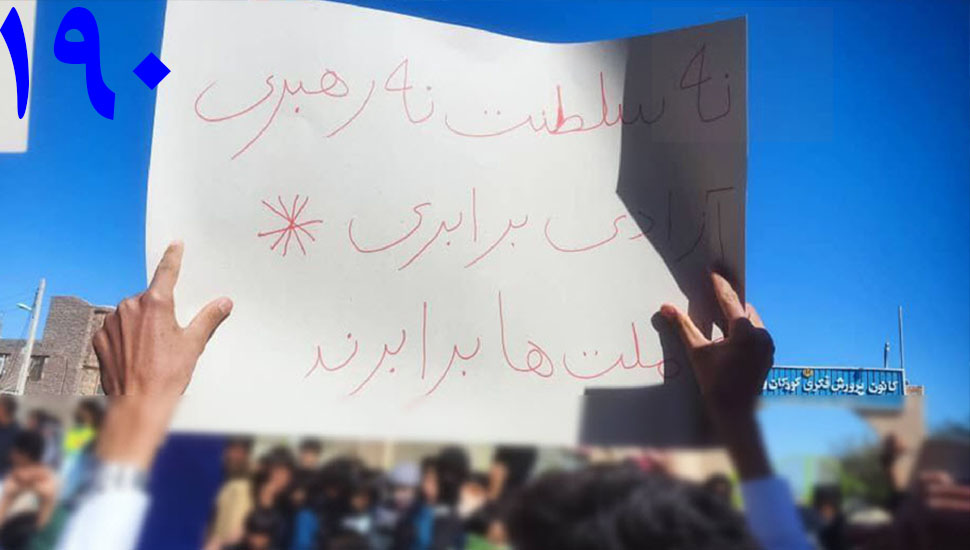 ۱۹۰
نه سلطنت نه رهبری
آزادی برابری *
ملت ها برابرند
کانون پرورش فکری کودکان و